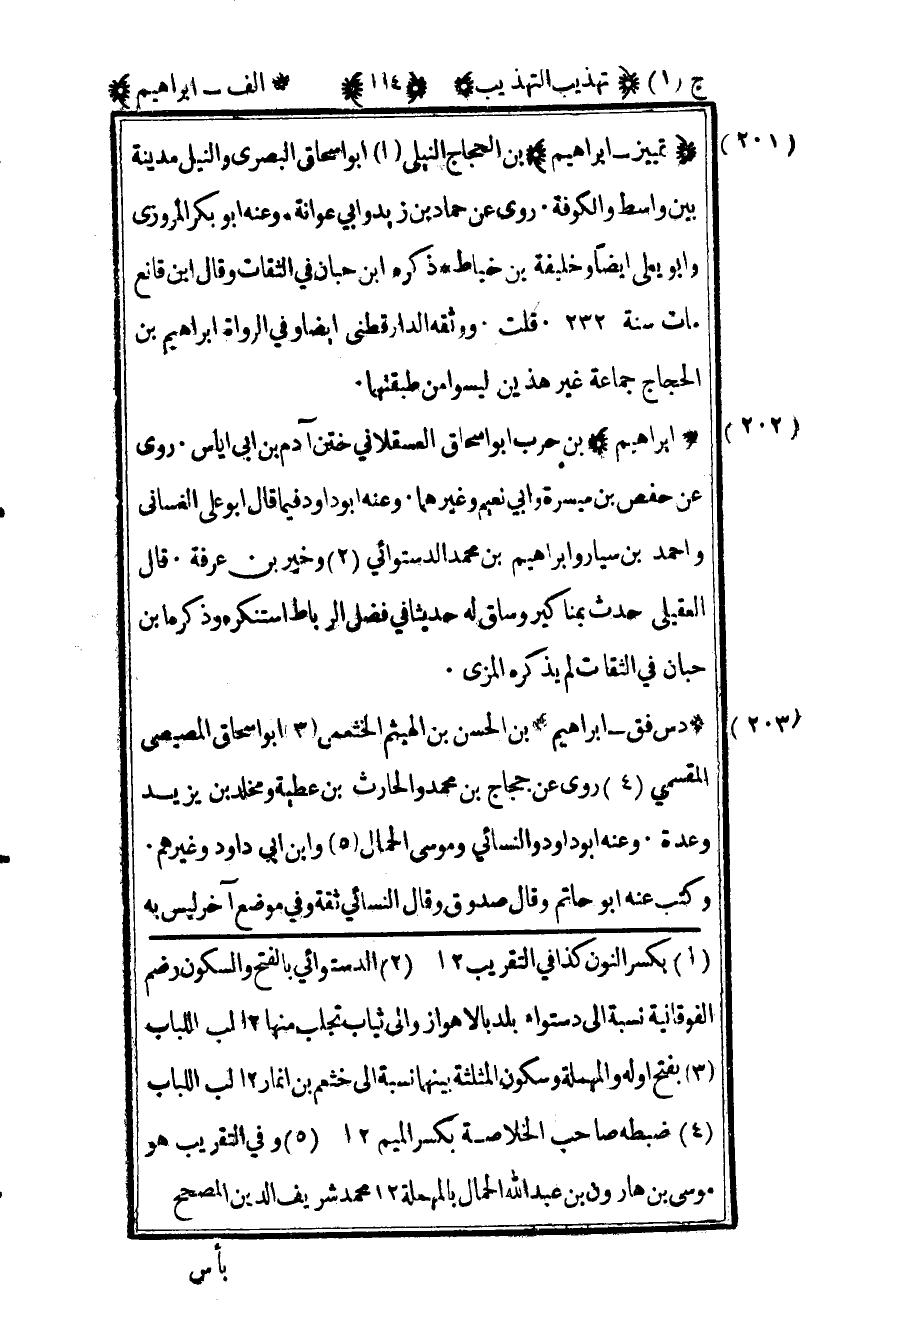 ج (١) ﴿ تهذيب التهذيب ﴾ ﴿ ١١٤ ﴾ * الف ــ ابراهيم ﴾
(٢٠١) ﴿ تمييز ــ ابراهيم ﴾ بن الحجاج النيلي (١) ابواسحاق البصرى والنيل مدينة
بين واسط والكوفة ٠ روى عن حماد بن زيد وابي عوانة ٠ وعنه ابو بكر المروزى
وابو يعلى ايضاً وخليفة بن خياط * ذكره ابن حبان في الثقات وقال ابن قانع
مات سنة ٢٣٢ ٠ قلت ٠ ووثقه الدارقطنى ايضا وفي الرواة ابراهيم بن
الحجاج جماعة غير هذين ليسوا من طبقتها ٠
(٢٠٢) * ابراهيم ﴾ بن حرب ابواسحاق العسقلاني ختن آدم بن ابى اياس ٠ روى
عن حفص بن ميسرة وابي نعيم وغيرهما ٠ وعنه ابوداود فيما قال ابوعلى الغسانى
واحمد بن سيار وابراهيم بن محمد الدستوائي (٢) وخير بن عرفة ٠ قال
العقيلى حدث بمناكير وساق له حديثا في فضل الرباط استنكره وذكره ابن
حبان في الثقات لم يذكره المزى ٠
(٢٠٣) * دس فق ــ ابراهيم * بن الحسن بن الهيثم الخثعمى (٣) ابواسحاق المصيصى
المقسمي (٤) روى عن حجاج بن محمد والحارث بن عطية ومخلد بن يزيــد
وعدة ٠ وعنه ابوداود والنسائي وموسى الحمال (٥) وابن ابي داود وغيرهم ٠
وكتب عنه ابو حاتم وقال صدوق وقال النسائي ثقة وفي موضع آخر ليس به
(١) بكسر النون كذا في التقريب ١٢ (٢) الدستوائي بالفتح والسكون وضم
الفوقانية نسبة الى دستواء بلد بالاهواز والى ثياب تجلب منها ١٢ لب اللباب
(٣) بفتح اوله والمهملة وسكون المثلثة بينهما نسبة الى خثعم بن انمار ١٢ لب اللباب
(٤) ضبطه صاحب الخلاصــة بكسر الميم ١٢ (٥) وفي التقريب هو
موسى بن هارون بن عبدالله الحمال بالمهملة ١٢ محمد شريف الدين المصحح
بأس